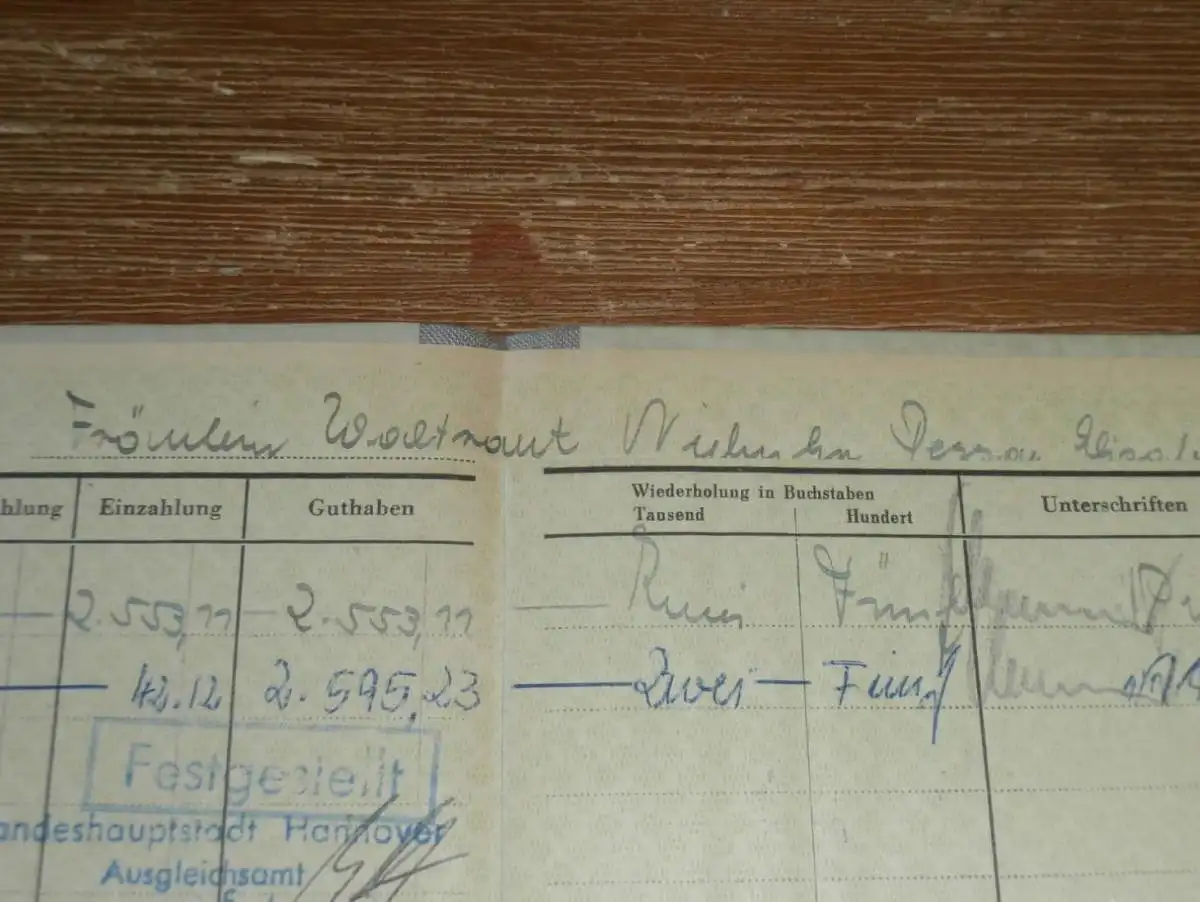 Fräulein Waltraut
hlung Einzahlung Guthaben Wiederholung in Buchstaben Unterschriften
Tausend Hundert
2.553,11 2.553,11 Fünf
42.12 2.595,23 Zwei Fünf
Festgestellt
andeshauptstadt Hannover
Ausgleichsamt